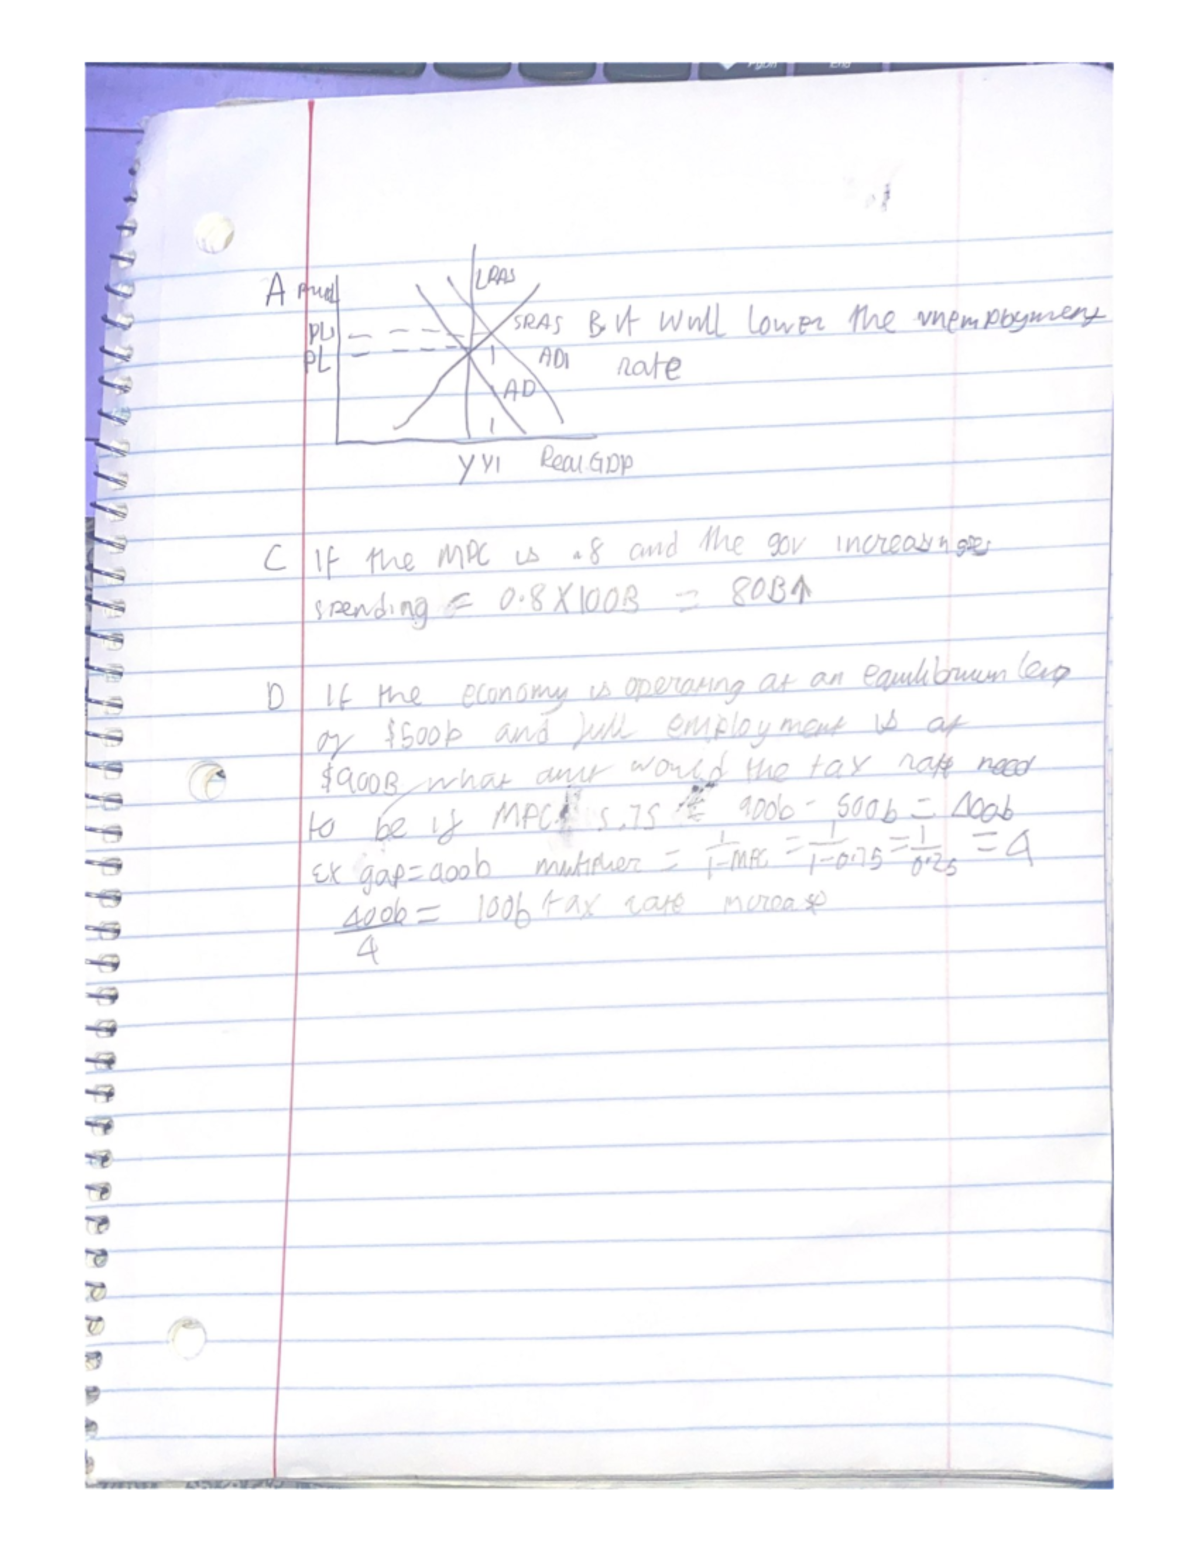 A
LRAS
PL1
SRAS B It will lower the unemployment
PL
AD1 rate
AD
Y Y1 Real GDP
C If the MPC is .8 and the gov increasing
spending = 0.8X100B = 80B↑
D If the economy is operating at an equilibrium
of $500b and full employment is at
$900B what would the tax rate need
to be if MPC is .75 900b - 500b = 400b
Ex gap=400b multiplier = 1/1-MPC = 1/1-0.75 = 1/0.25 = 4
400b/4 = 100b tax rate increase